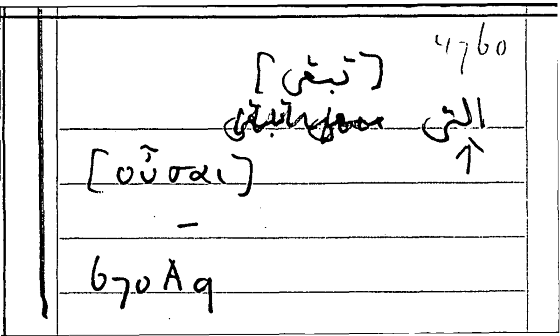 4760
[تبقى]
التى
↑
[οὖσαι]
–
670 A 9